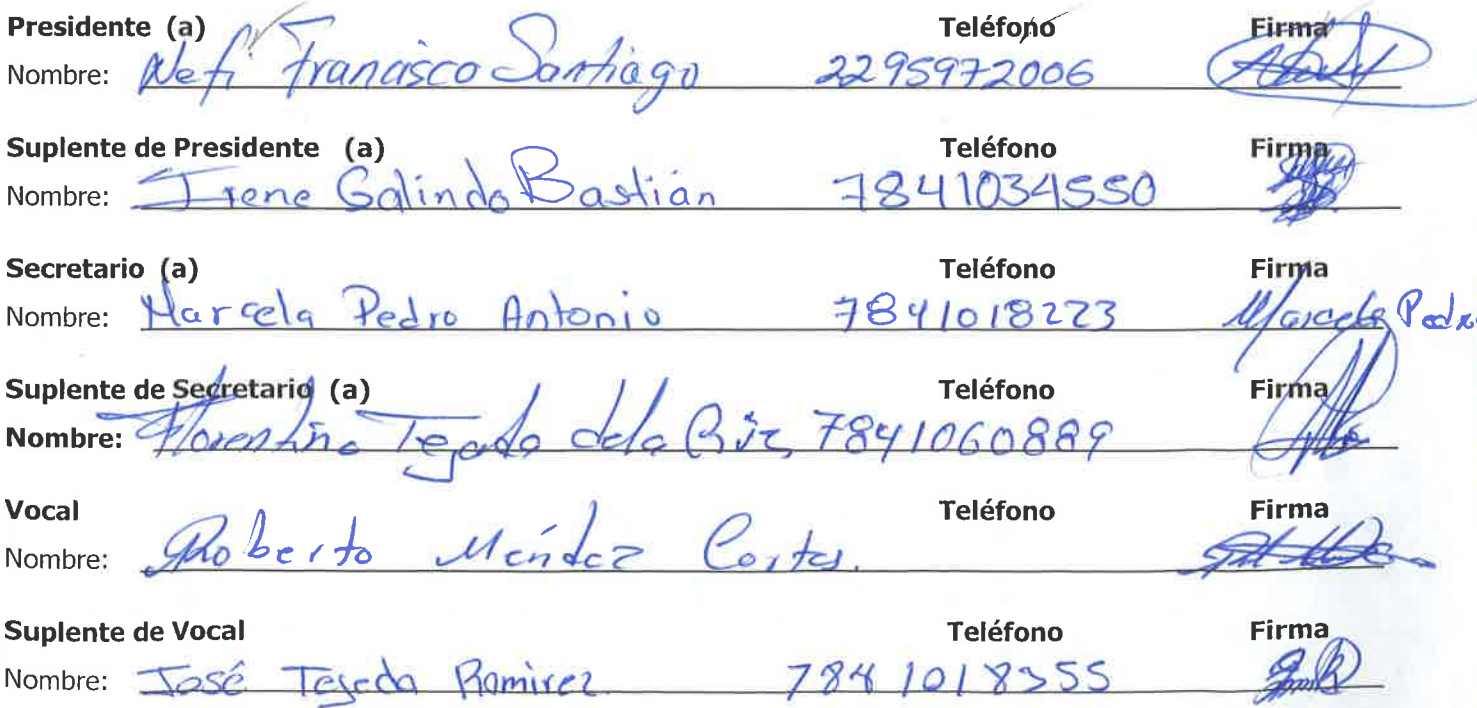 Presidente (a) Teléfono Firma
Nombre: Nefi Francisco Santiago 2295972006
Suplente de Presidente (a) Teléfono Firma
Nombre: Irene Galindo Bastián 7841034550
Secretario (a) Teléfono Firma
Nombre: Marcela Pedro Antonio 7841018223 Marcela Pedro
Suplente de Secretario (a) Teléfono Firma
Nombre: Florentino Tejada dela 7841060889
Vocal Teléfono Firma
Nombre: Roberto Méndez Cortes.
Suplente de Vocal Teléfono Firma
Nombre: José Tejeda Ramirez 7841018355